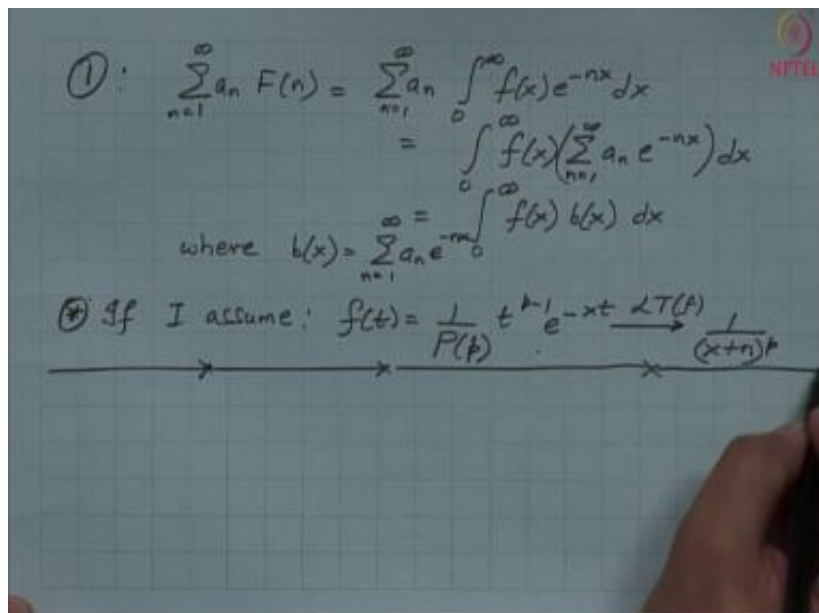 ①: ∞∑n=1 aₙ F(n) = ∞∑n=1 aₙ ∫₀^∞ f(x) e^{-nx} dx
= ∫₀^∞ f(x) (∞∑n=1 aₙ e^{-nx}) dx
= ∫₀^∞ f(x) b(x) dx
where b(x) = ∞∑n=1 aₙ e^{-nx}
⊛ If I assume: f(t) = 1/Γ(p) t^{p-1} e^{-xt} → LT(f) 1/(x+n)^p
NPTEL